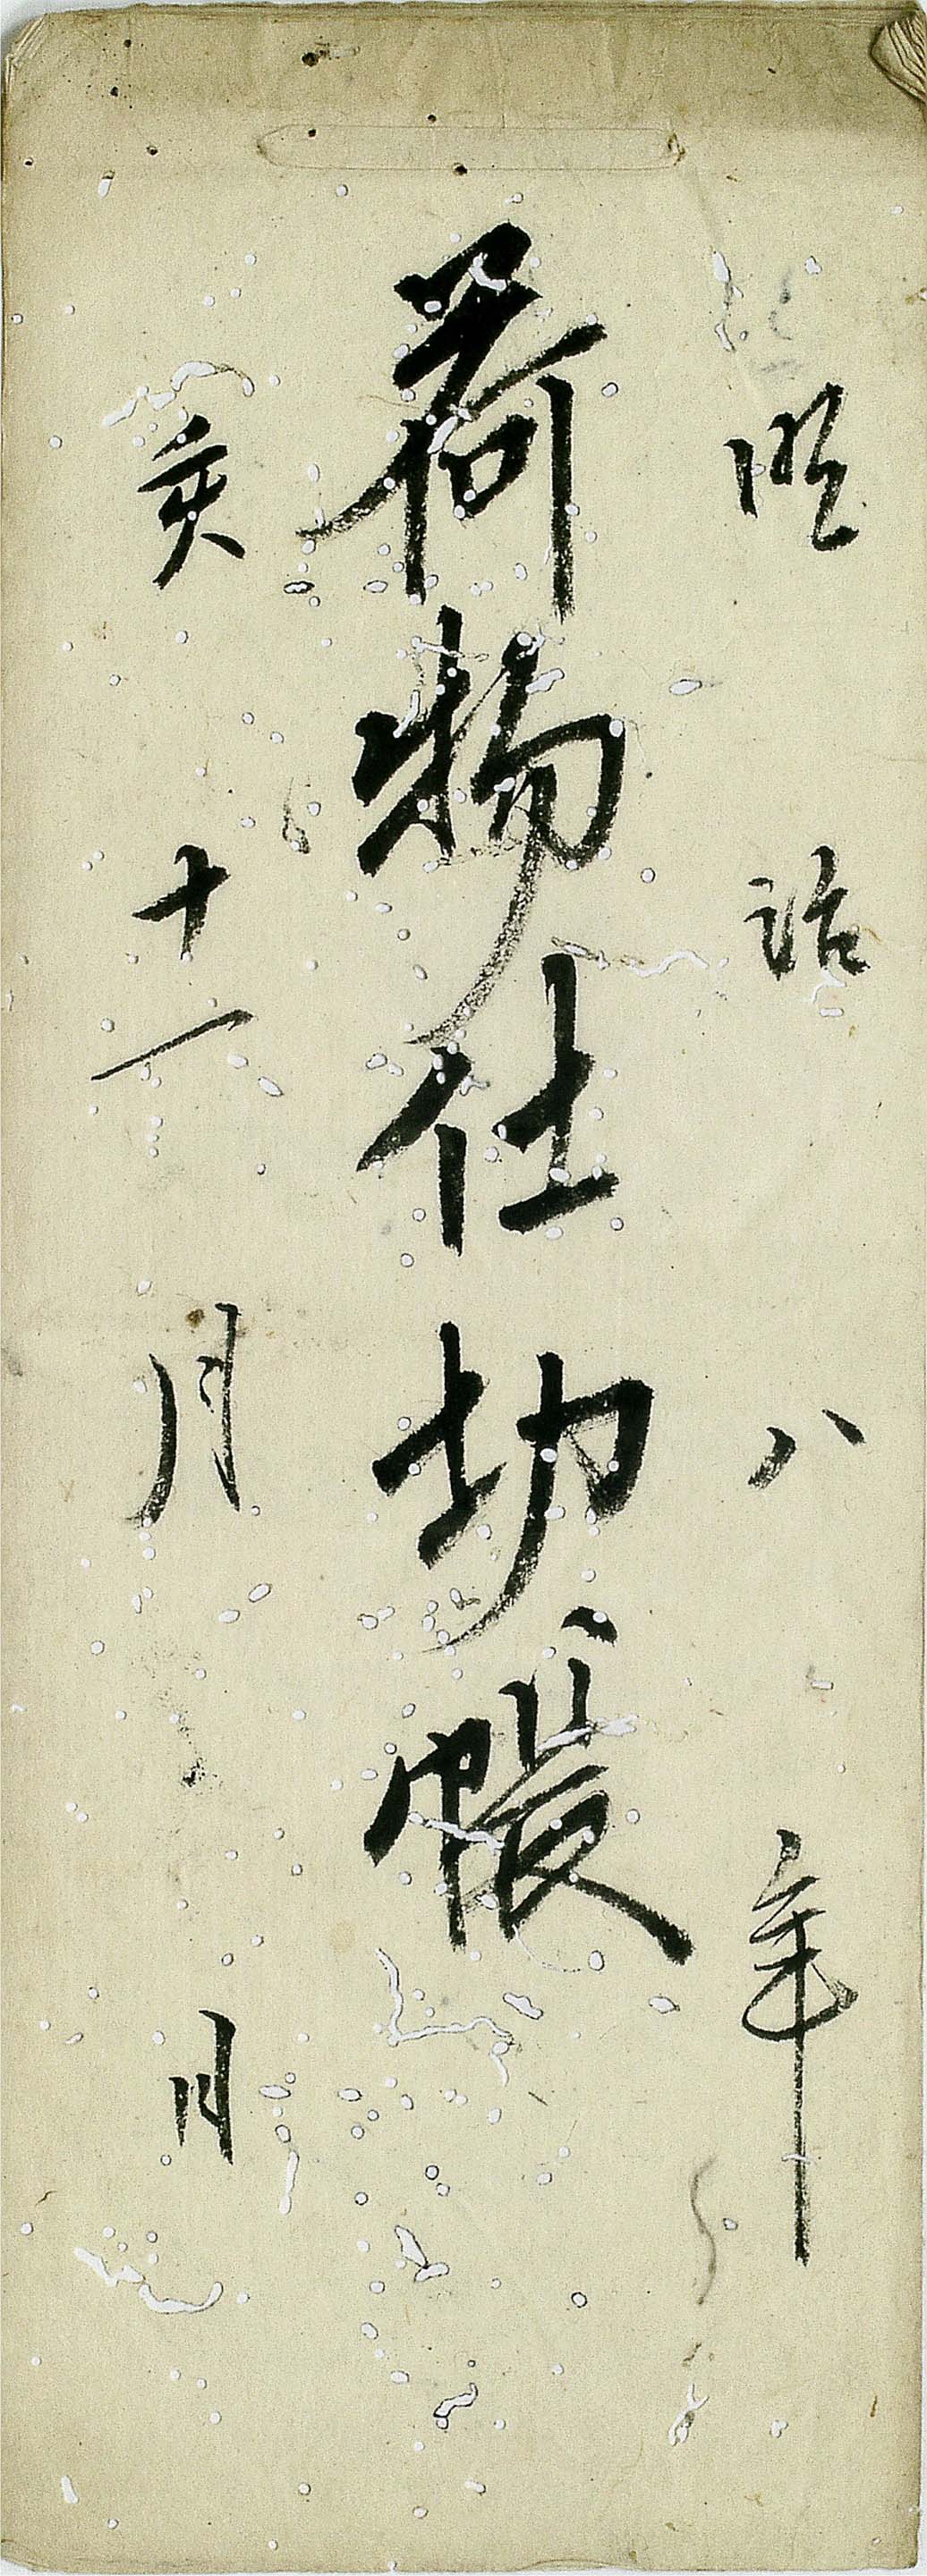 明治八年
荷物仕切帳
亥十一月日